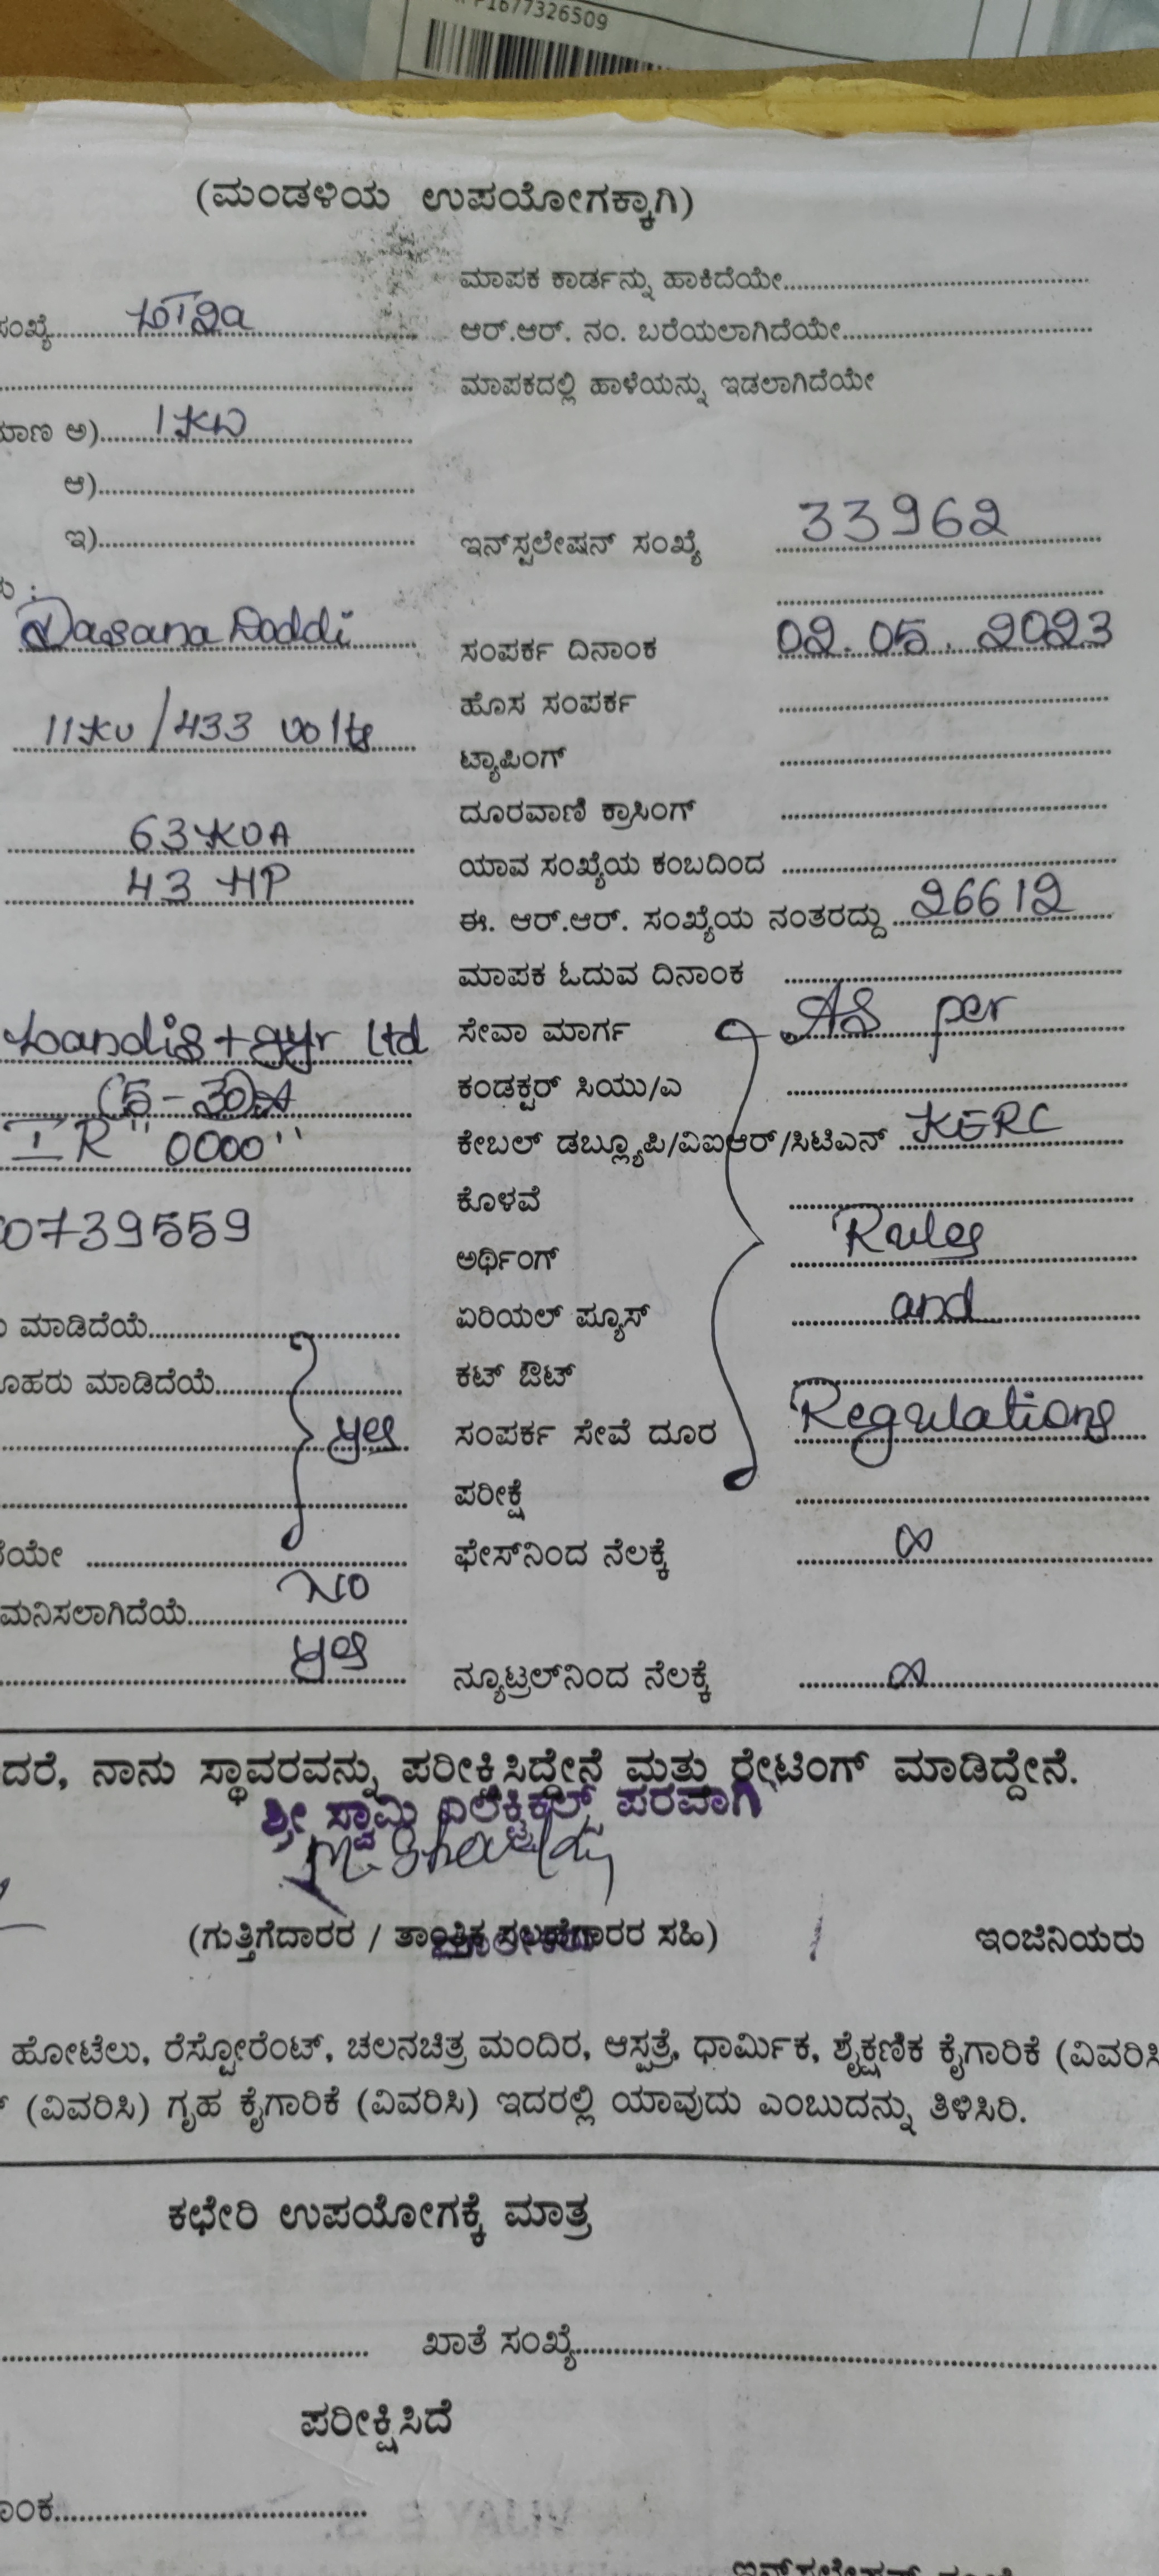 1677326509
(ಮಂಡಳಿಯ ಉಪಯೋಗಕ್ಕಾಗಿ)
ಮಾಪಕ ಕಾರ್ಡನ್ನು ಹಾಕಿದೆಯೇ
ಸಂಖ್ಯೆ
ಆರ್.ಆರ್. ನಂ. ಬರೆಯಲಾಗಿದೆಯೇ
ಮಾಪಕದಲ್ಲಿ ಹಾಳೆಯನ್ನು ಇಡಲಾಗಿದೆಯೇ
ಅ) 1KW
ಆ)
ಇ)
ಇನ್‌ಸ್ಟಲೇಷನ್ ಸಂಖ್ಯೆ 33962
Dasana Doddi
ಸಂಪರ್ಕ ದಿನಾಂಕ 02.05.2023
ಹೊಸ ಸಂಪರ್ಕ
11KV/433 Volts
ಟ್ಯಾಪಿಂಗ್
ದೂರವಾಣಿ ಕ್ರಾಸಿಂಗ್
63KVA
ಯಾವ ಸಂಖ್ಯೆಯ ಕಂಬದಿಂದ
43 HP
ಈ. ಆರ್.ಆರ್. ಸಂಖ್ಯೆಯ ನಂತರದ್ದು 26612
ಮಾಪಕ ಓದುವ ದಿನಾಂಕ
Landis+gyr Ltd ಸೇವಾ ಮಾರ್ಗ As per
(5-30)A ಕಂಡಕ್ಟರ್ ಸಿಯು/ಎ
IR "0000" ಕೇಬಲ್ ಡಬ್ಲ್ಯೂಪಿ/ವಿಐಆರ್/ಸಿಟಿಎನ್ KERC
ಕೊಳವೆ
0739559
ಅರ್ಥಿಂಗ್ Rules
ಮಾಡಿದೆಯೆ
ಏರಿಯಲ್ ಪ್ಯೂಸ್ and
ಮಾಡಿದೆಯೆ
ಕಟ್ ಔಟ್
yes ಸಂಪರ್ಕ ಸೇವೆ ದೂರ Regulations
ಪರೀಕ್ಷೆ
ಫೇಸ್‌ನಿಂದ ನೆಲಕ್ಕೆ ∞
NO
yes
ನ್ಯೂಟ್ರಲ್‌ನಿಂದ ನೆಲಕ್ಕೆ ∞
ನಾನು ಸ್ಥಾವರವನ್ನು ಪರೀಕ್ಷಿಸಿದ್ದೇನೆ ಮತ್ತು ರೇಟಿಂಗ್ ಮಾಡಿದ್ದೇನೆ.
ಶ್ರೀ ಸ್ವಾಮಿ ಎಲೆಕ್ಟ್ರಿಕಲ್ಸ್ ಪರವಾಗಿ
(ಗುತ್ತಿಗೆದಾರರ / ತಾಂತ್ರಿಕ ಸಲಹೆಗಾರರ ಸಹಿ)
ಇಂಜಿನಿಯರು
ಹೋಟೆಲು, ರೆಸ್ಟೋರೆಂಟ್, ಚಲನಚಿತ್ರ ಮಂದಿರ, ಆಸ್ಪತ್ರೆ, ಧಾರ್ಮಿಕ, ಶೈಕ್ಷಣಿಕ ಕೈಗಾರಿಕೆ (ವಿವರಿಸಿ
(ವಿವರಿಸಿ) ಗೃಹ ಕೈಗಾರಿಕೆ (ವಿವರಿಸಿ) ಇದರಲ್ಲಿ ಯಾವುದು ಎಂಬುದನ್ನು ತಿಳಿಸಿರಿ.
ಕಛೇರಿ ಉಪಯೋಗಕ್ಕೆ ಮಾತ್ರ
ಖಾತೆ ಸಂಖ್ಯೆ
ಪರೀಕ್ಷಿಸಿದೆ